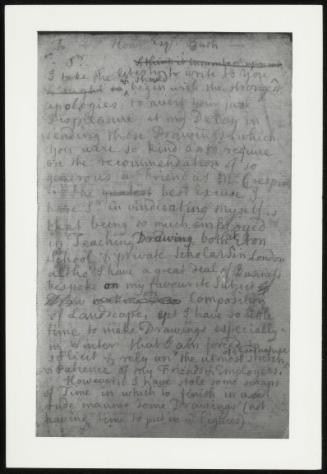 To Hoar Esqr. Bath
Sr. I think it incumbent upon me
I take the liberty to write to You
begin with the strongest
apologies, to avert your just
Displeasure at my Delay in
sending those Drawings which
you were so kind as to require
on the recommendation of so
generous a Friend as Mr Crespin
The greatest best Excuse I
have Sr. in vindicating myself is
that being so much employed
in Teaching Drawing both at
School & private Scholars in London
altho' I have a great deal of Business
bespoke on my favourite Subject
Composition
of Landscape, yet I have so little
time to make Drawings especially
in Winter that I am forced
sollicit & rely on the utmost
Patience of My Friends & Employers.
However I have stole some scraps
of Time in which to finish in a
rude manner some Drawings (not
having Time to put in any Figures)